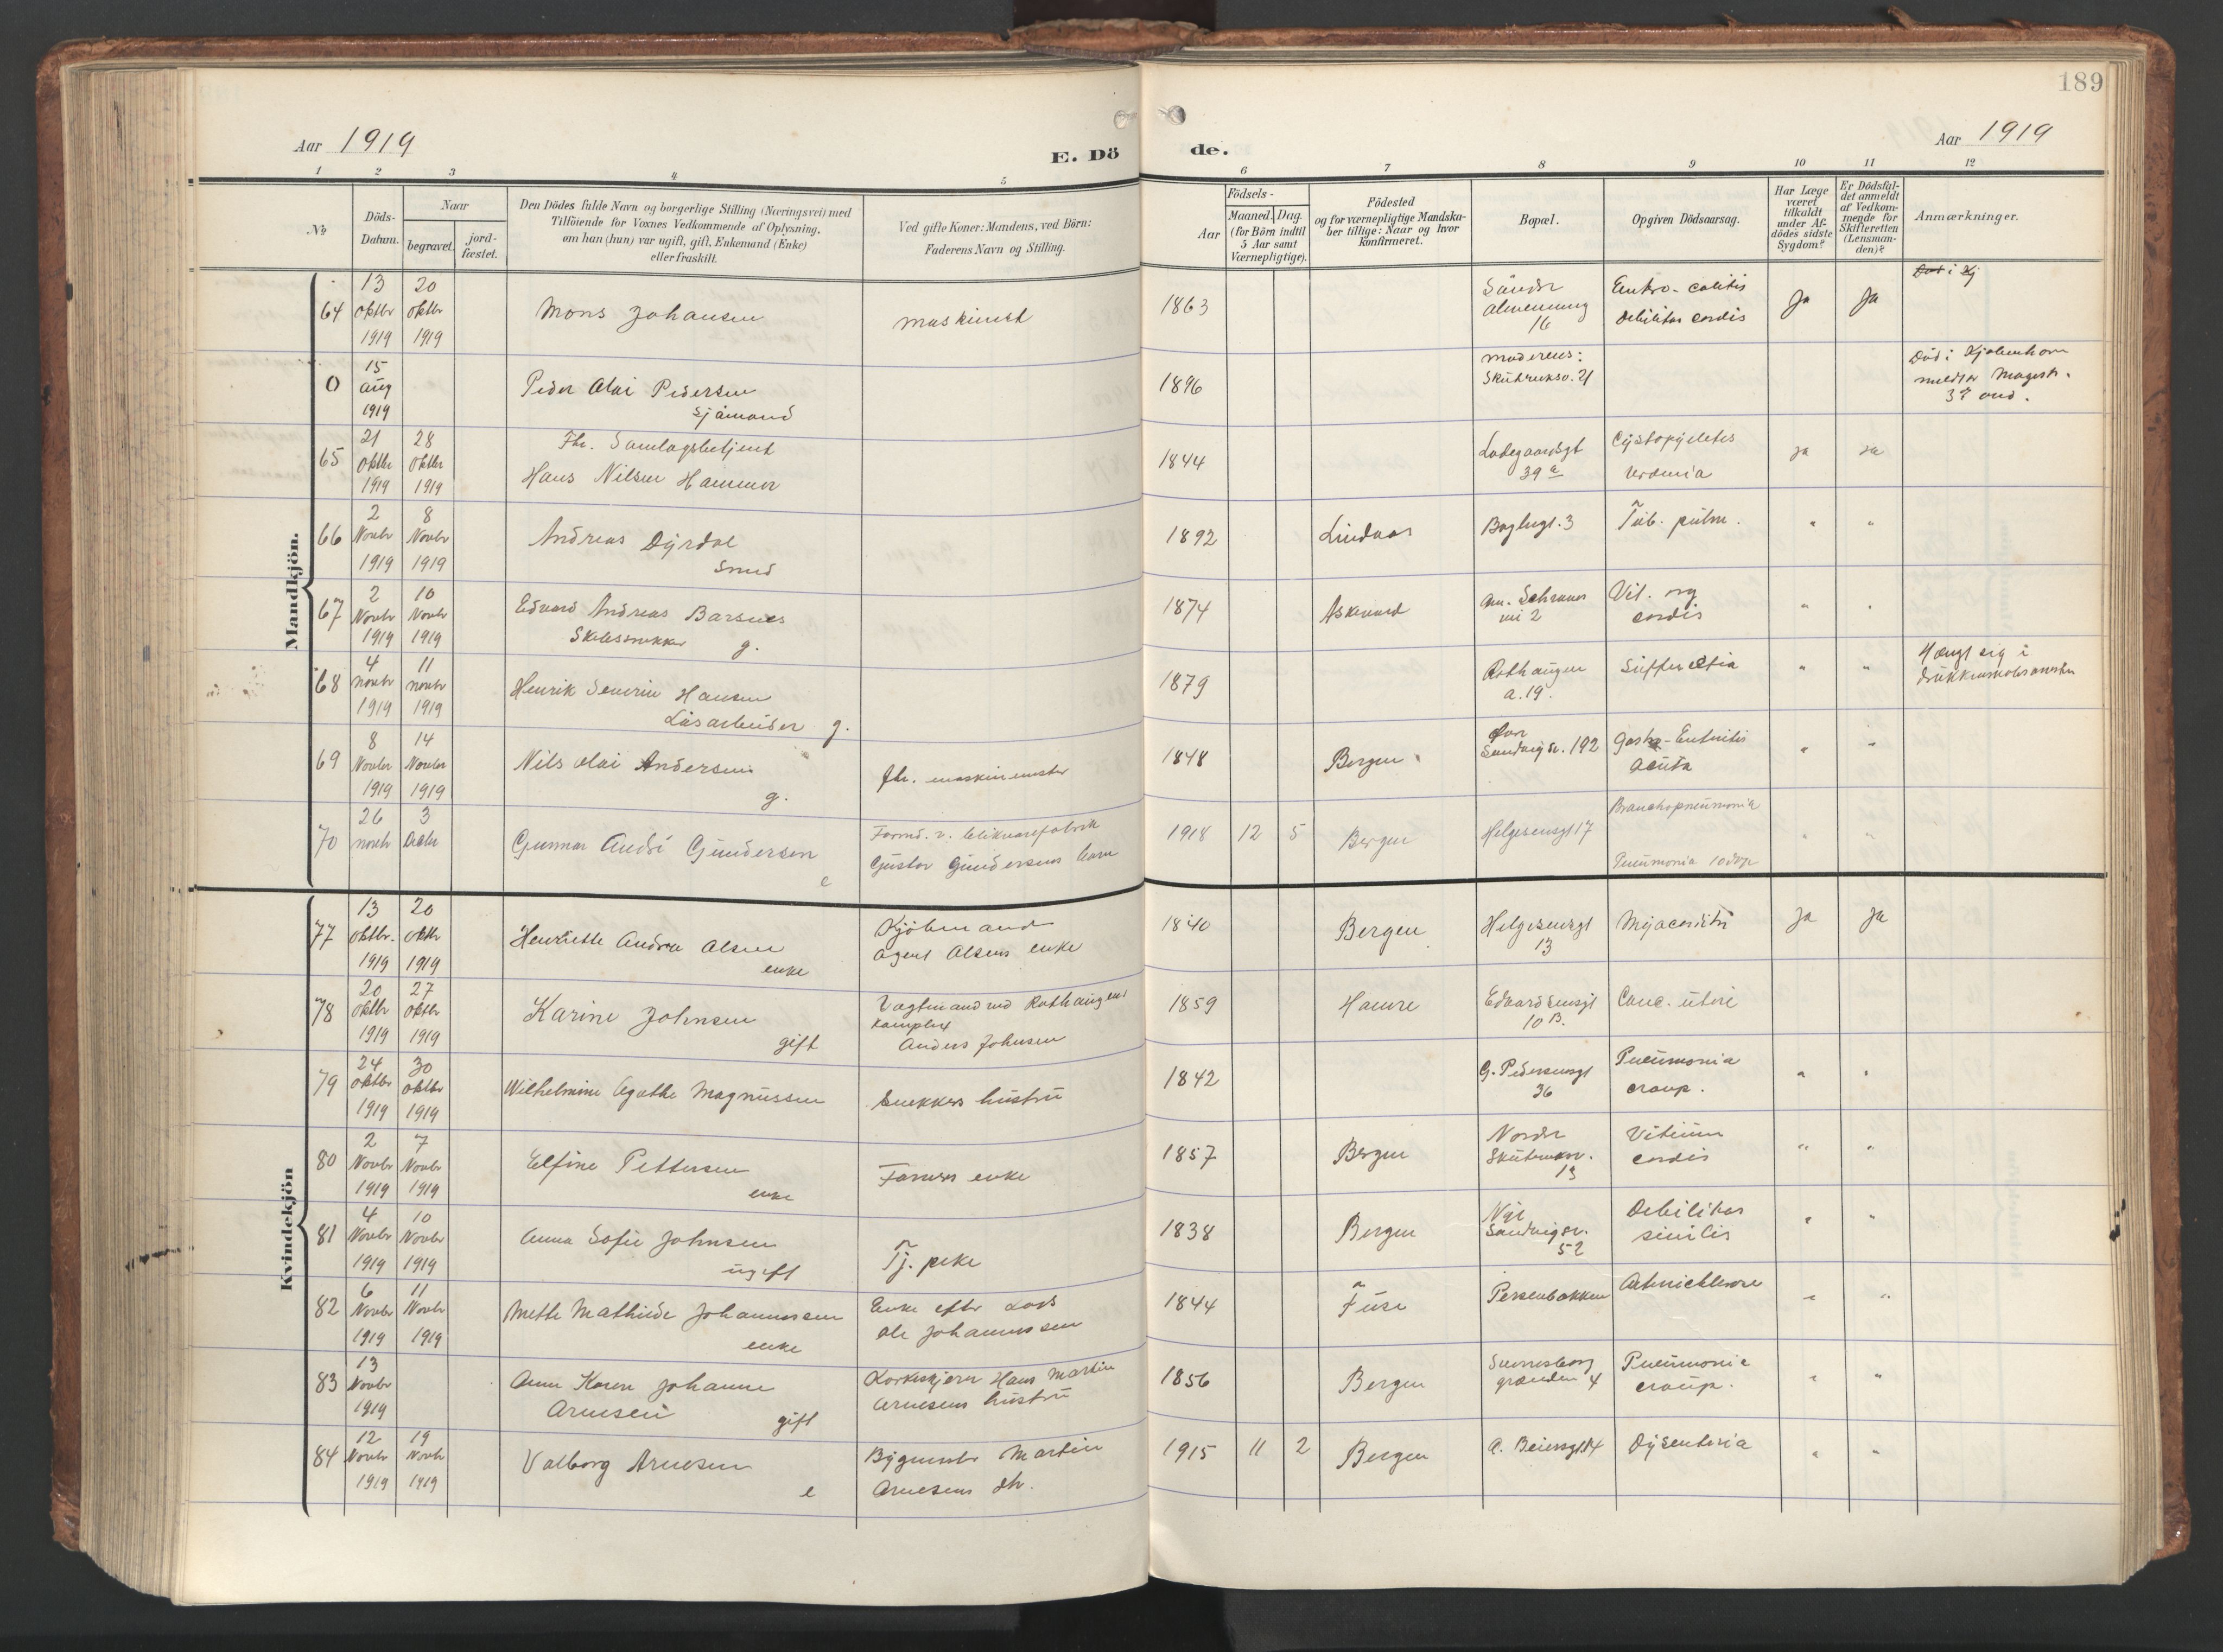 189
Aar 1919
E. Dö
de.
Aar 1919
1 2 3 4 5 6 7 8 9 10 11 12
№
Döds-
Datum.
Naar
begravet.
jord-
fæstet.
Den Dödes fulde Navn og borgerlige Stilling (Næringsvei) med
Tilföiende for Voxnes Vedkommende af Oplysning,
om han (hun) var ugift, gift, Enkemand (Enke)
eller fraskilt.
Ved gifte Koner: Mandens, ved Börn:
Faderens Navn og Stilling.
Födsels-
Aar
Maaned.
Dag.
(for Börn indtil
5 Aar samt
Værnepligtige).
Födested
og for værnepligtige Mandska-
ber tillige: Naar og hvor
konfirmeret.
Bopæl.
Opgiven Dödsaarsag.
Har Læge
været
tilkaldt
under Af-
dödes sidste
Sygdom?
Er Dödsfal-
det anmeldt
af Vedkom-
mende for
Skifteretten
(Lensman-
den)?
Anmærkninger.
Mandkjön.
64
13 oktbr 1919
20 oktbr 1919
Mons Johansen
maskinist
1863
Söndre
almenning
16
Entero-colitis
debilitas cordis
Ja
Ja
0
15 aug 1919
Peder Olai Pedersen
Sjömand
1896
Moderens:
Skuteviksv. 21
Död i Kjøbenhavn
65
21 oktbr 1919
28 oktbr 1919
Fhv. Samlagsbetjent
Hans Nilsen Hammer
1844
Ladegaardsgt
39 a
Cystopyelitis
ja
ja
66
2 Novbr 1919
8 Novbr 1919
Andreas Dyrdal
Smed
1892
Lindaas
Baglergt. 3
Tub. pulm.
"
"
67
2 Novbr 1919
10 Novbr 1919
Edvard Andreas Barsnes
g.
1874
Askevold
Vit. org
cordis
"
"
68
4 novbr 1919
11 novbr 1919
Henrik Severin Hansen
Løsarbeider g.
1879
Rothaugen
a. 19.
"
"
Hængt sig i
69
8 Novbr 1919
14 Novbr 1919
Nils Olai Andersen
g.
fh. maskinmester
1848
Bergen
Øvre
Sandvigsv. 192
Gastro-Enteritis
acuta
"
"
70
26 novbr
3 Decbr
Gunnar André Gundersen
e
Formd. v. blikvarefabrik
Gustav Gundersens barn
1918 12 5
Bergen
Helgesensgt 17
Bronchopneumonia
Pneumonia
"
"
Kvindekjön
77
13 oktbr. 1919
20 oktbr 1919
Henriette Andrea Olsen
enke
Kjöbmand
Agent Olsens enke
1840
Bergen
Helgesensgt
13
Myocarditis
Ja
Ja
78
20 oktbr 1919
27 oktbr 1919
Karine Johnsen
gift
Vagtmand ved Rothaugens
kompleks
Anders Johnsen
1859
Hamre
Edvardsensgt
10 B.
Canc. uteri
79
24 oktbr 1919
30 oktbr 1919
Wilhelmine Agathe Magnussen
Snekkers hustru
1842
G. Pedersensgt
36
Pneumonia
croup.
"
"
80
2 Novbr 1919
7 Novbr 1919
Elfine Pettersen
enke
Formers enke
1857
Bergen
Nordre
Skuteviksv.
13
Vitium
cordis
"
"
81
4 Novbr 1919
10 Novbr 1919
Anna Sofie Johnsen
ugift
Tj. pike
1838
Bergen
Nye
Sandvigsv.
52
Debilitas
senilis
"
"
82
6 Novbr 1919
11 Novbr 1919
Mette Mathilde Johannessen
enke
Enke efter Lods
Ole Johannessen
1844
Fuse
Persenbakken
"
"
83
13 Novbr 1919
Anne Karen Johanne
Arnesen
gift
Korkeskjærer Hans Martin
Arnesens hustru
1856
Bergen
Sverresborg
grænden 4
Pneumonia
croup.
"
"
84
12 Novbr 1919
19 Novbr 1919
Valborg Arnesen
e
Bygmestr Martin
Arnesens dtr.
1915 11 2
Bergen
A. Beiersgt 14
Dysenteria
"
"